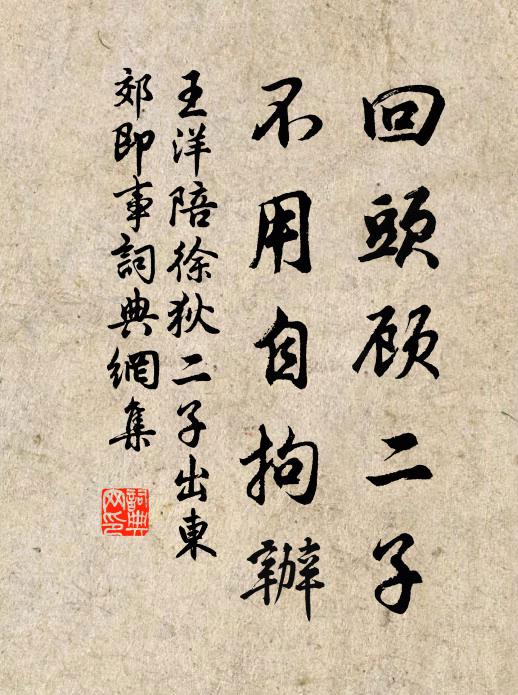 回頭顾二子
不用自拘辦
王洋陪徐狄二子出東
郊即事詞典網集
詞典网印